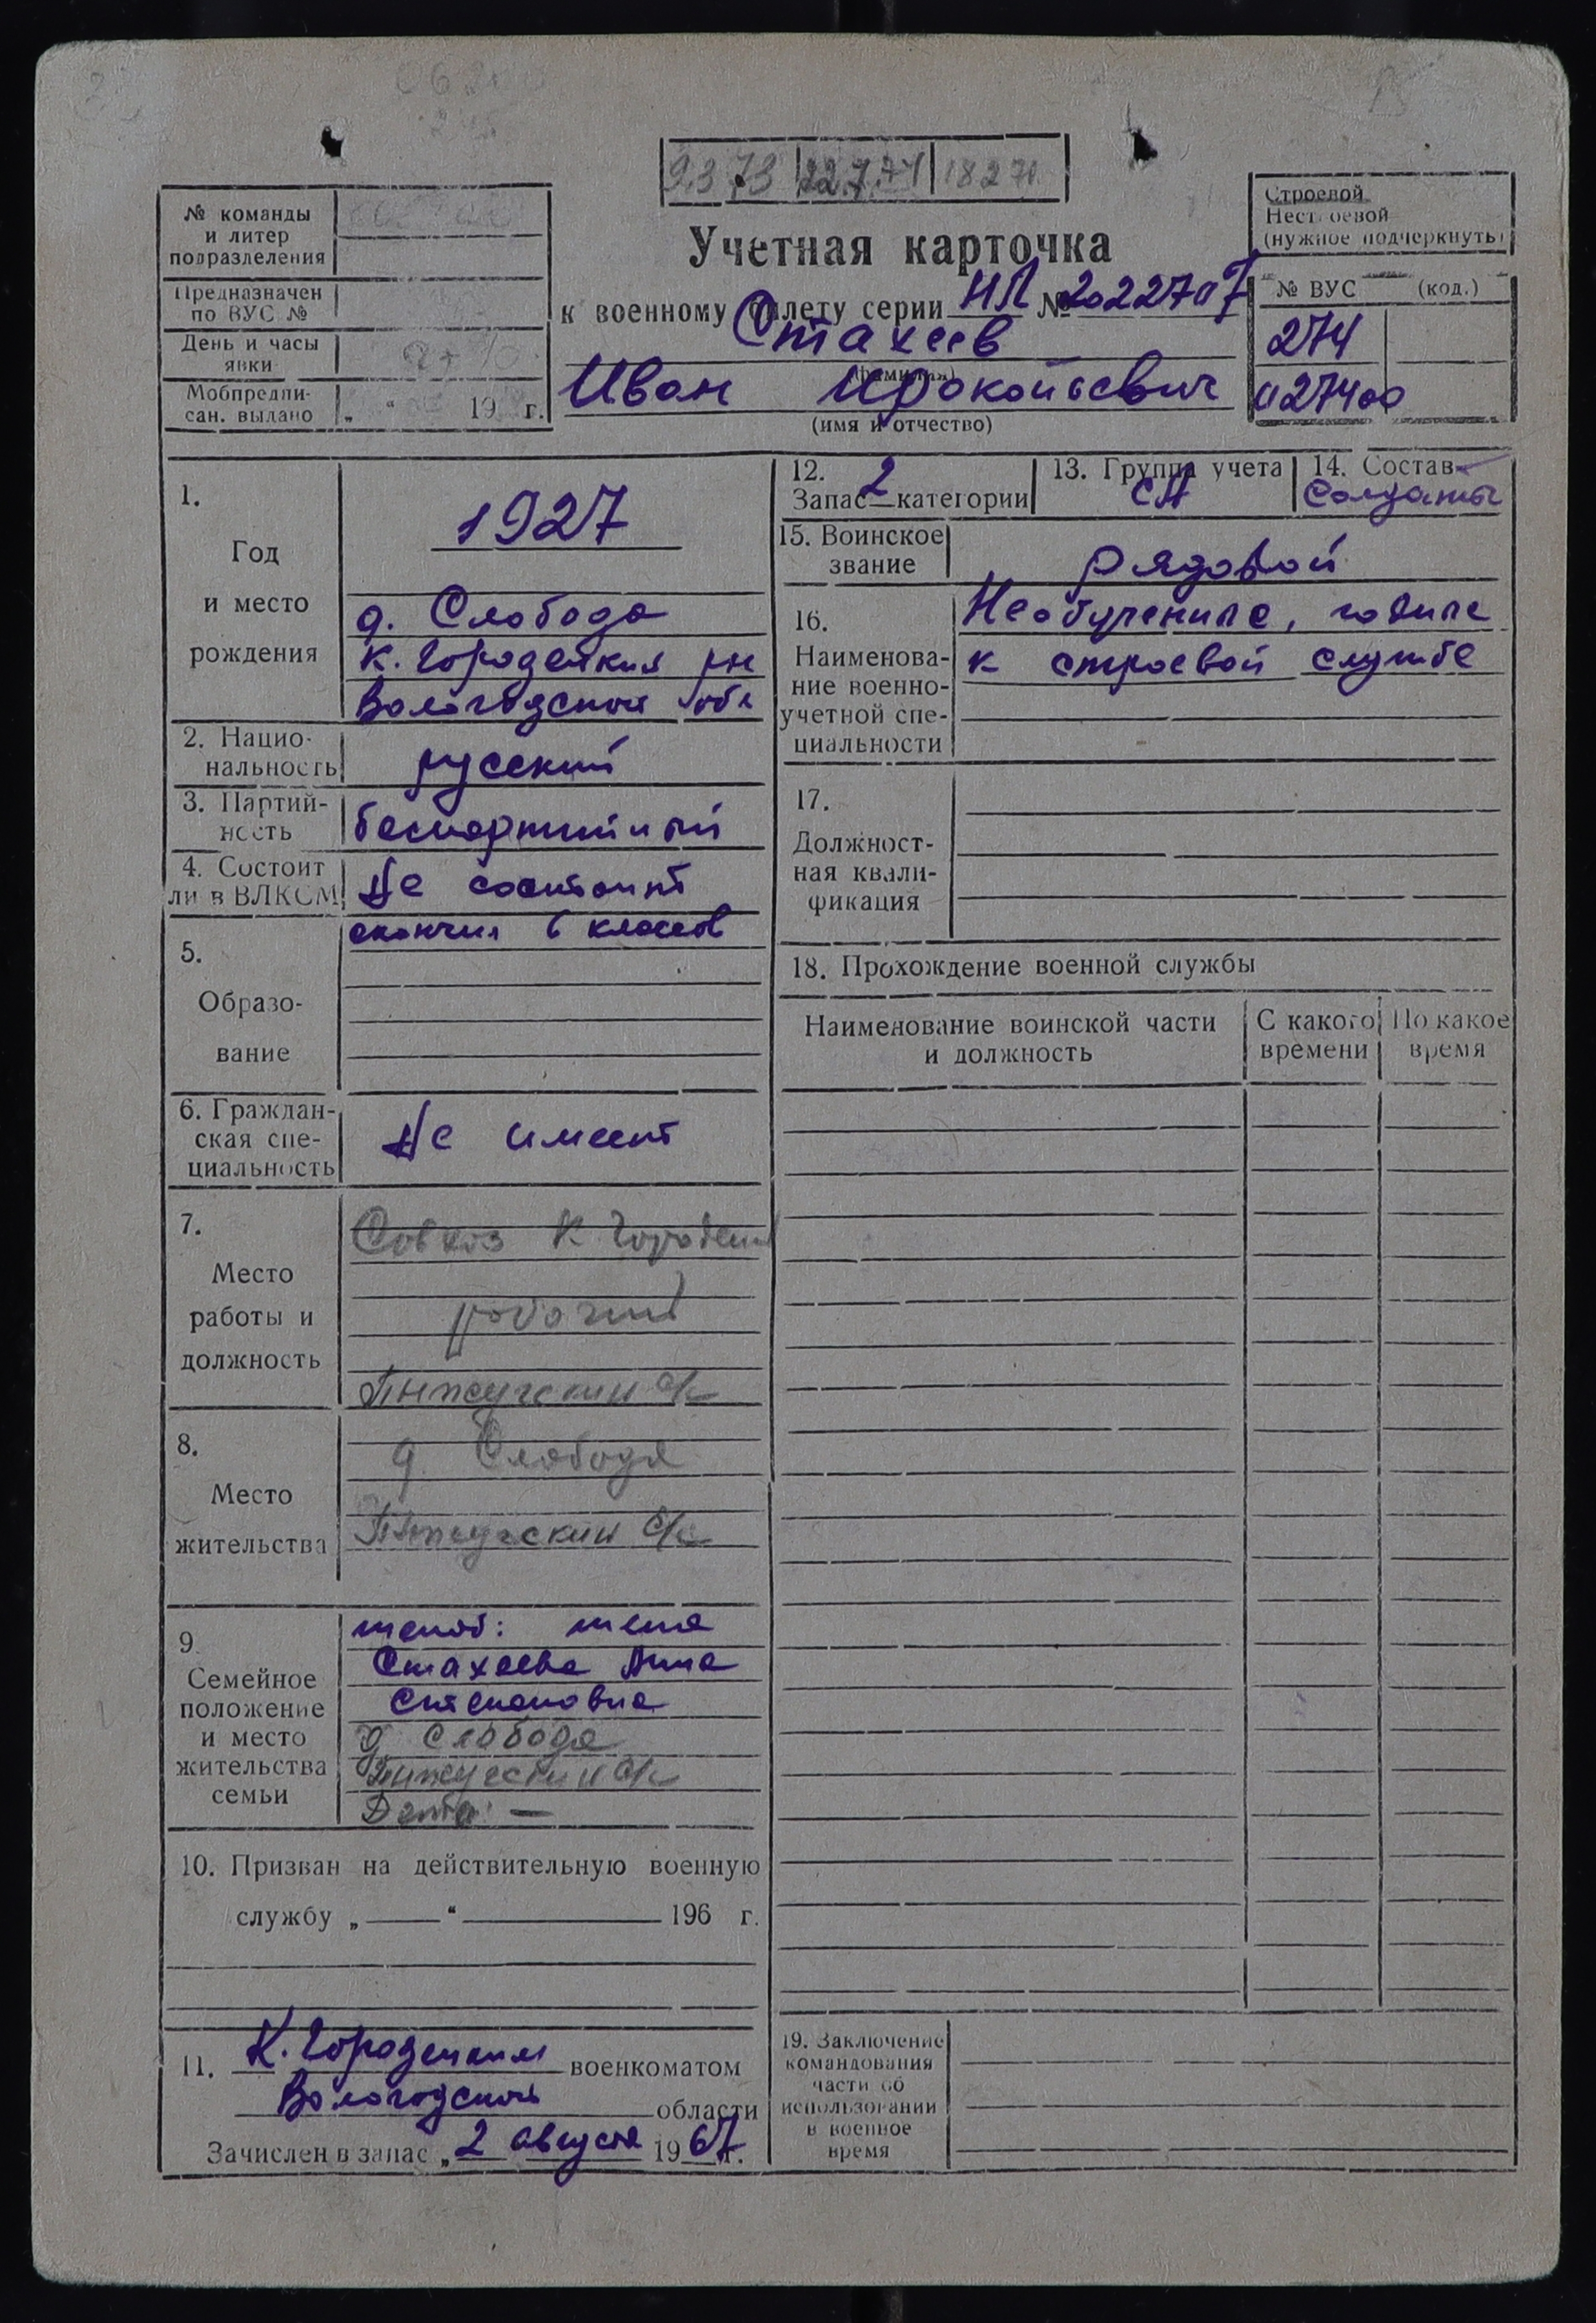 9.3.73 22.7.74 18 2 71.
№ команды
и литер
подразделения
Предназначен
по ВУС №
День и часы
явки
Мобпредпи-
сан. выдано „ “ 19 г.
Учетная карточка
к военному билету серии НЛ № 2022707
Стахеев
(фамилия)
Иван Прокопьевич
(имя и отчество)
Строевой
Нестроевой
(нужное подчеркнуть)
№ ВУС (код.)
274
027400
1.
Год
и место
рождения
1927
д. Слобода
К. Городецкий рн
Вологодской обл
2. Нацио-
нальность
русский
3. Партий-
ность
беспартийный
4. Состоит
ли в ВЛКСМ
Не состоит
5.
Образо-
вание
окончил 6 классов
6. Граждан-
ская спе-
циальность
Не имеет
7.
Место
работы и
должность
Совхоз К Городецкий
рабочий
с/с
8.
Место
жительства
д Слобода
с/с
9.
Семейное
положение
и место
жительства
семьи
женат: жена
Стахеева Анна
Степановна
д Слобода
с/с
Дети: —
10. Призван на действительную военную
службу „ “ 196 г.
11. К. Городецким военкоматом
Вологодской области
Зачислен в запас „2 августа 1967 г.
12.
Запас 2 категории
13. Группа учета
СА
14. Состав
Солдаты
15. Воинское
звание
рядовой
16.
Наименова-
ние военно-
учетной спе-
циальности
Необученные, годные
к строевой службе
17.
Должност-
ная квали-
фикация
18. Прохождение военной службы
Наименование воинской части
и должность
С какого
времени
По какое
время
19. Заключение
командования
части об
использовании
в военное
время